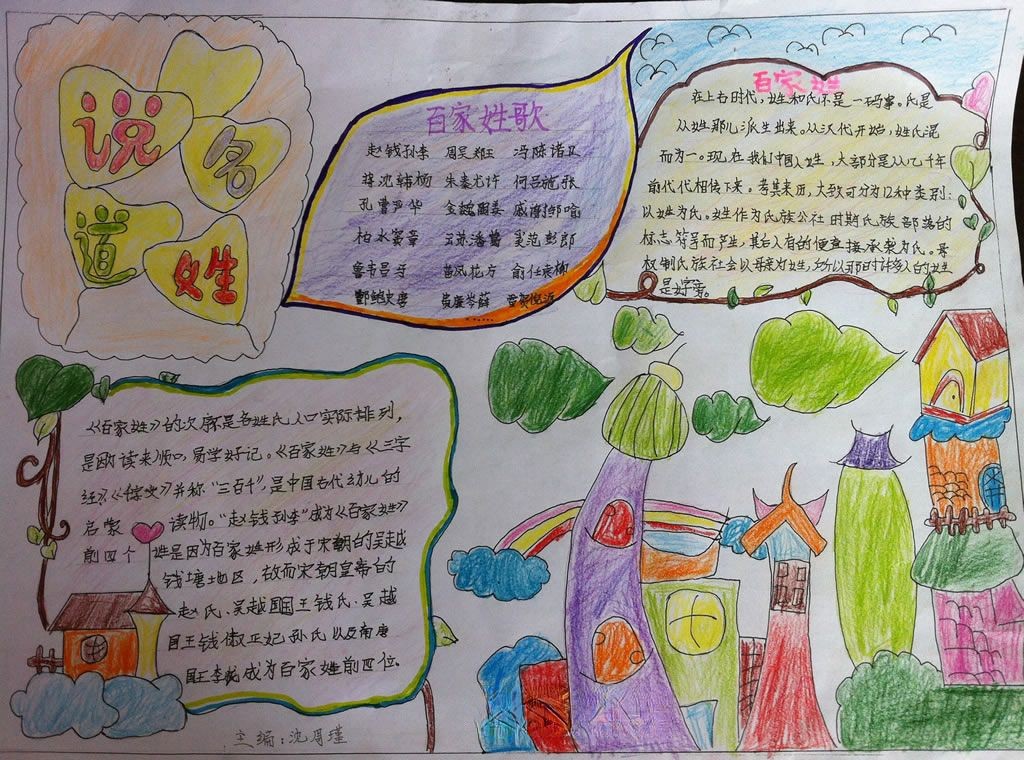 说名
道姓
百家姓歌
赵钱孙李 周吴郑王 冯陈诸卫
蒋沈韩杨 朱秦尤许 何吕施张
孔曹严华 金魏陶姜 戚谢邹喻
柏水窦章 云苏潘葛 奚范彭郎
鲁韦昌马 苗凤花方 俞任袁柳
酆鲍史唐 费廉岑薛 雷贺倪汤
……
百家姓
在上古时代，姓和氏不是一码事。氏是
从姓那儿派生出来。从汉代开始，姓氏混
而为一。现在我们中国人姓，大部分是从几千年
前代代相传下来。考其来历，大致可分为12种类别：
以姓为氏。姓作为氏族公社时期氏族部落的
标志符号而产生，其后人有的便直接承袭为氏。母
权制氏族社会以母亲为姓，所以那时许多人的姓
是女字旁。
《百家姓》的次序是各姓氏人口实际排列，
是因读来顺口，易学好记。《百家姓》与《三字
经》、《千字文》并称“三百千”，是中国古代幼儿的
启蒙读物。“赵钱孙李”成为《百家姓》
前四个姓是因为百家姓形成于宋朝的吴越
钱塘地区，故而宋朝皇帝的
赵氏、吴越国国王钱氏、吴越
国王钱俶正妃孙氏以及南唐
国王李氏成为百家姓前四位。
主编：沈周瑾